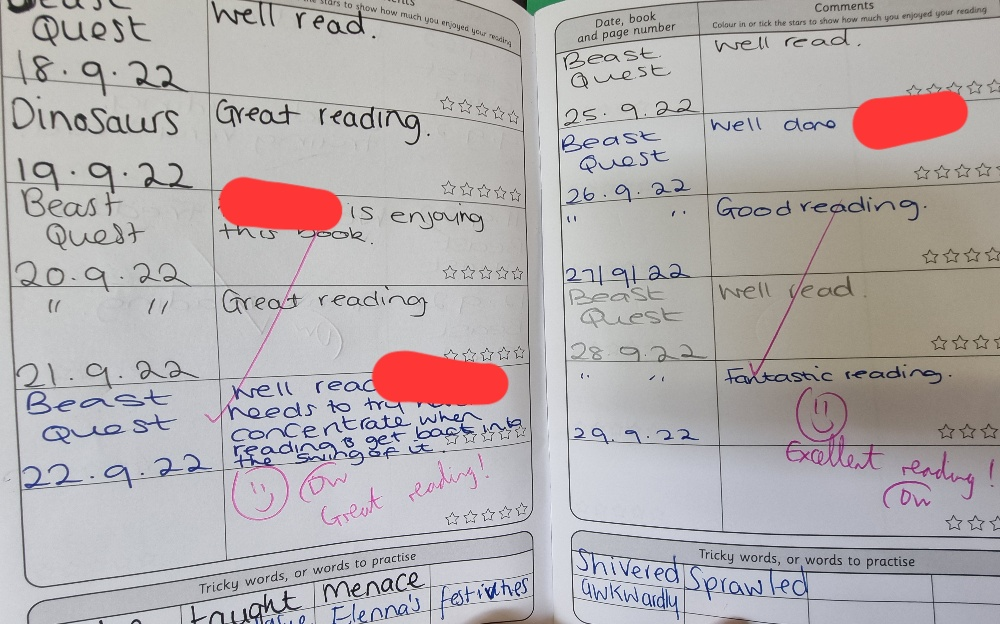 Beast
Quest
18.9.22
stars to show how much you enjoyed your reading
Well read.
Dinosaurs
19.9.22
Great reading.
Beast
Quest
20.9.22
is enjoying
this book.
" "
21.9.22
Great reading
Beast
Quest
22.9.22
Well read
needs to try
concentrate when
reading & get back into
the swing of it.
Great reading!
Tricky words, or words to practise
taught
menace
Elenna's
festivities
Date, book
and page number
Comments
Colour in or tick the stars to show how much you enjoyed your reading
Beast
Quest
25.9.22
Well read.
Beast
Quest
26.9.22
Well done
" "
27/9/22
Good reading.
Beast
Quest
28.9.22
Well read.
" "
29.9.22
Fantastic reading.
Excellent reading!
Tricky words, or words to practise
Shivered
Sprawled
awkwardly